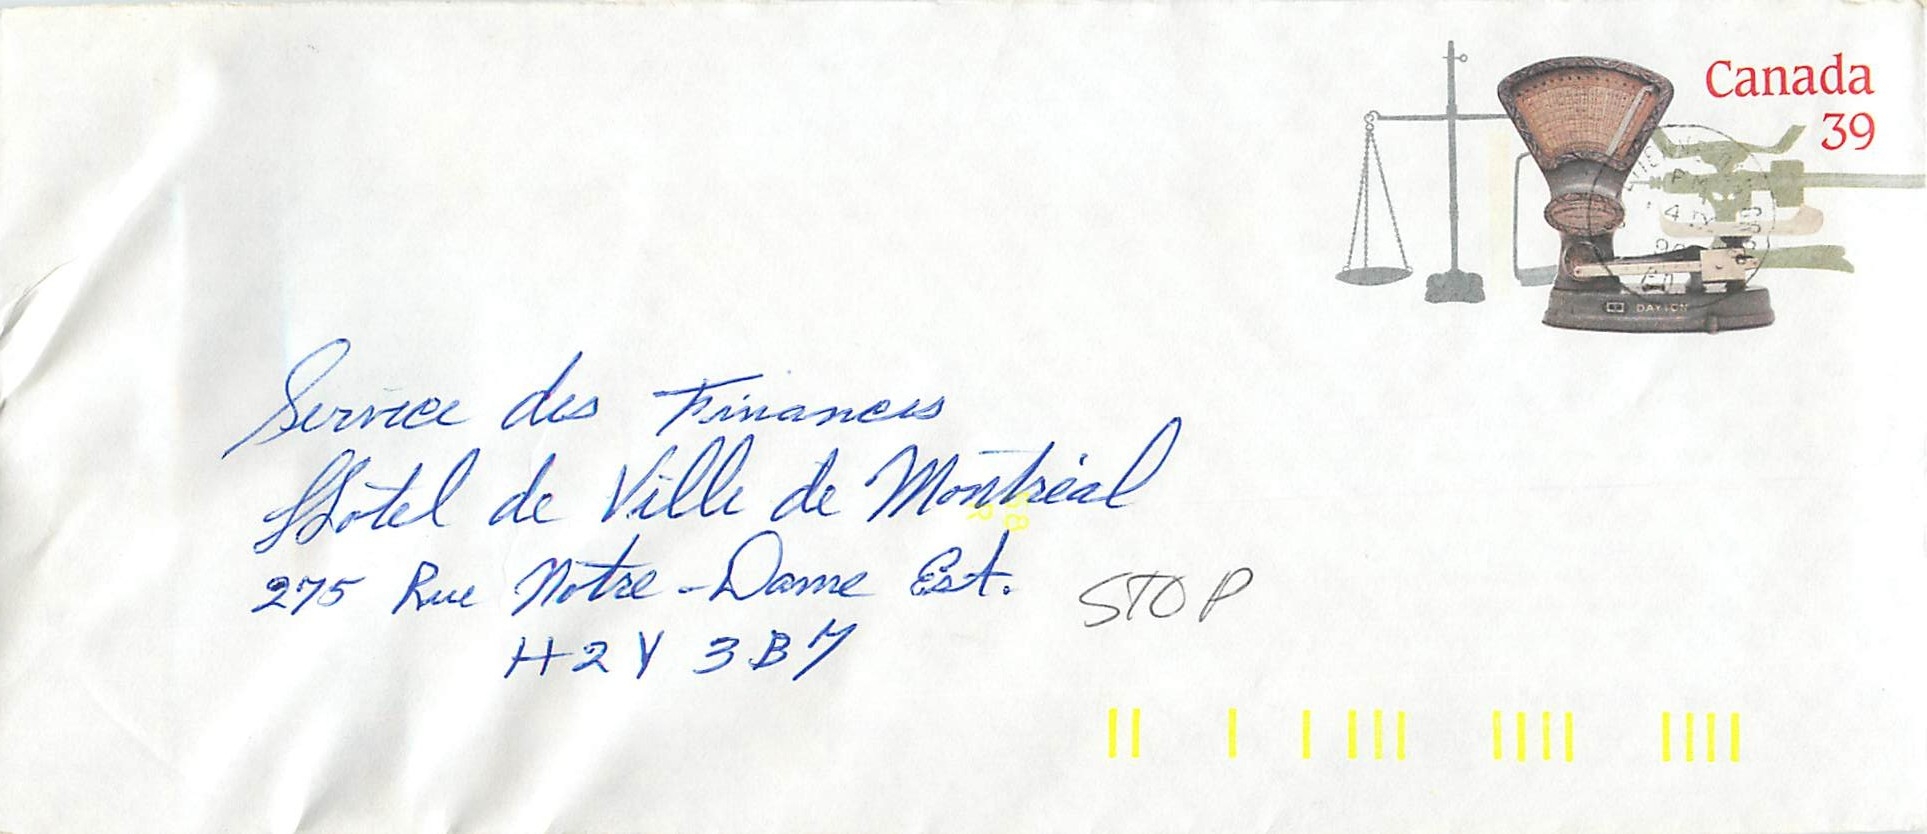 Canada
39
DAYTON
Service des Finances
Hôtel de Ville de Montréal
275 Rue Notre-Dame Est.
STOP
H2Y 3B7